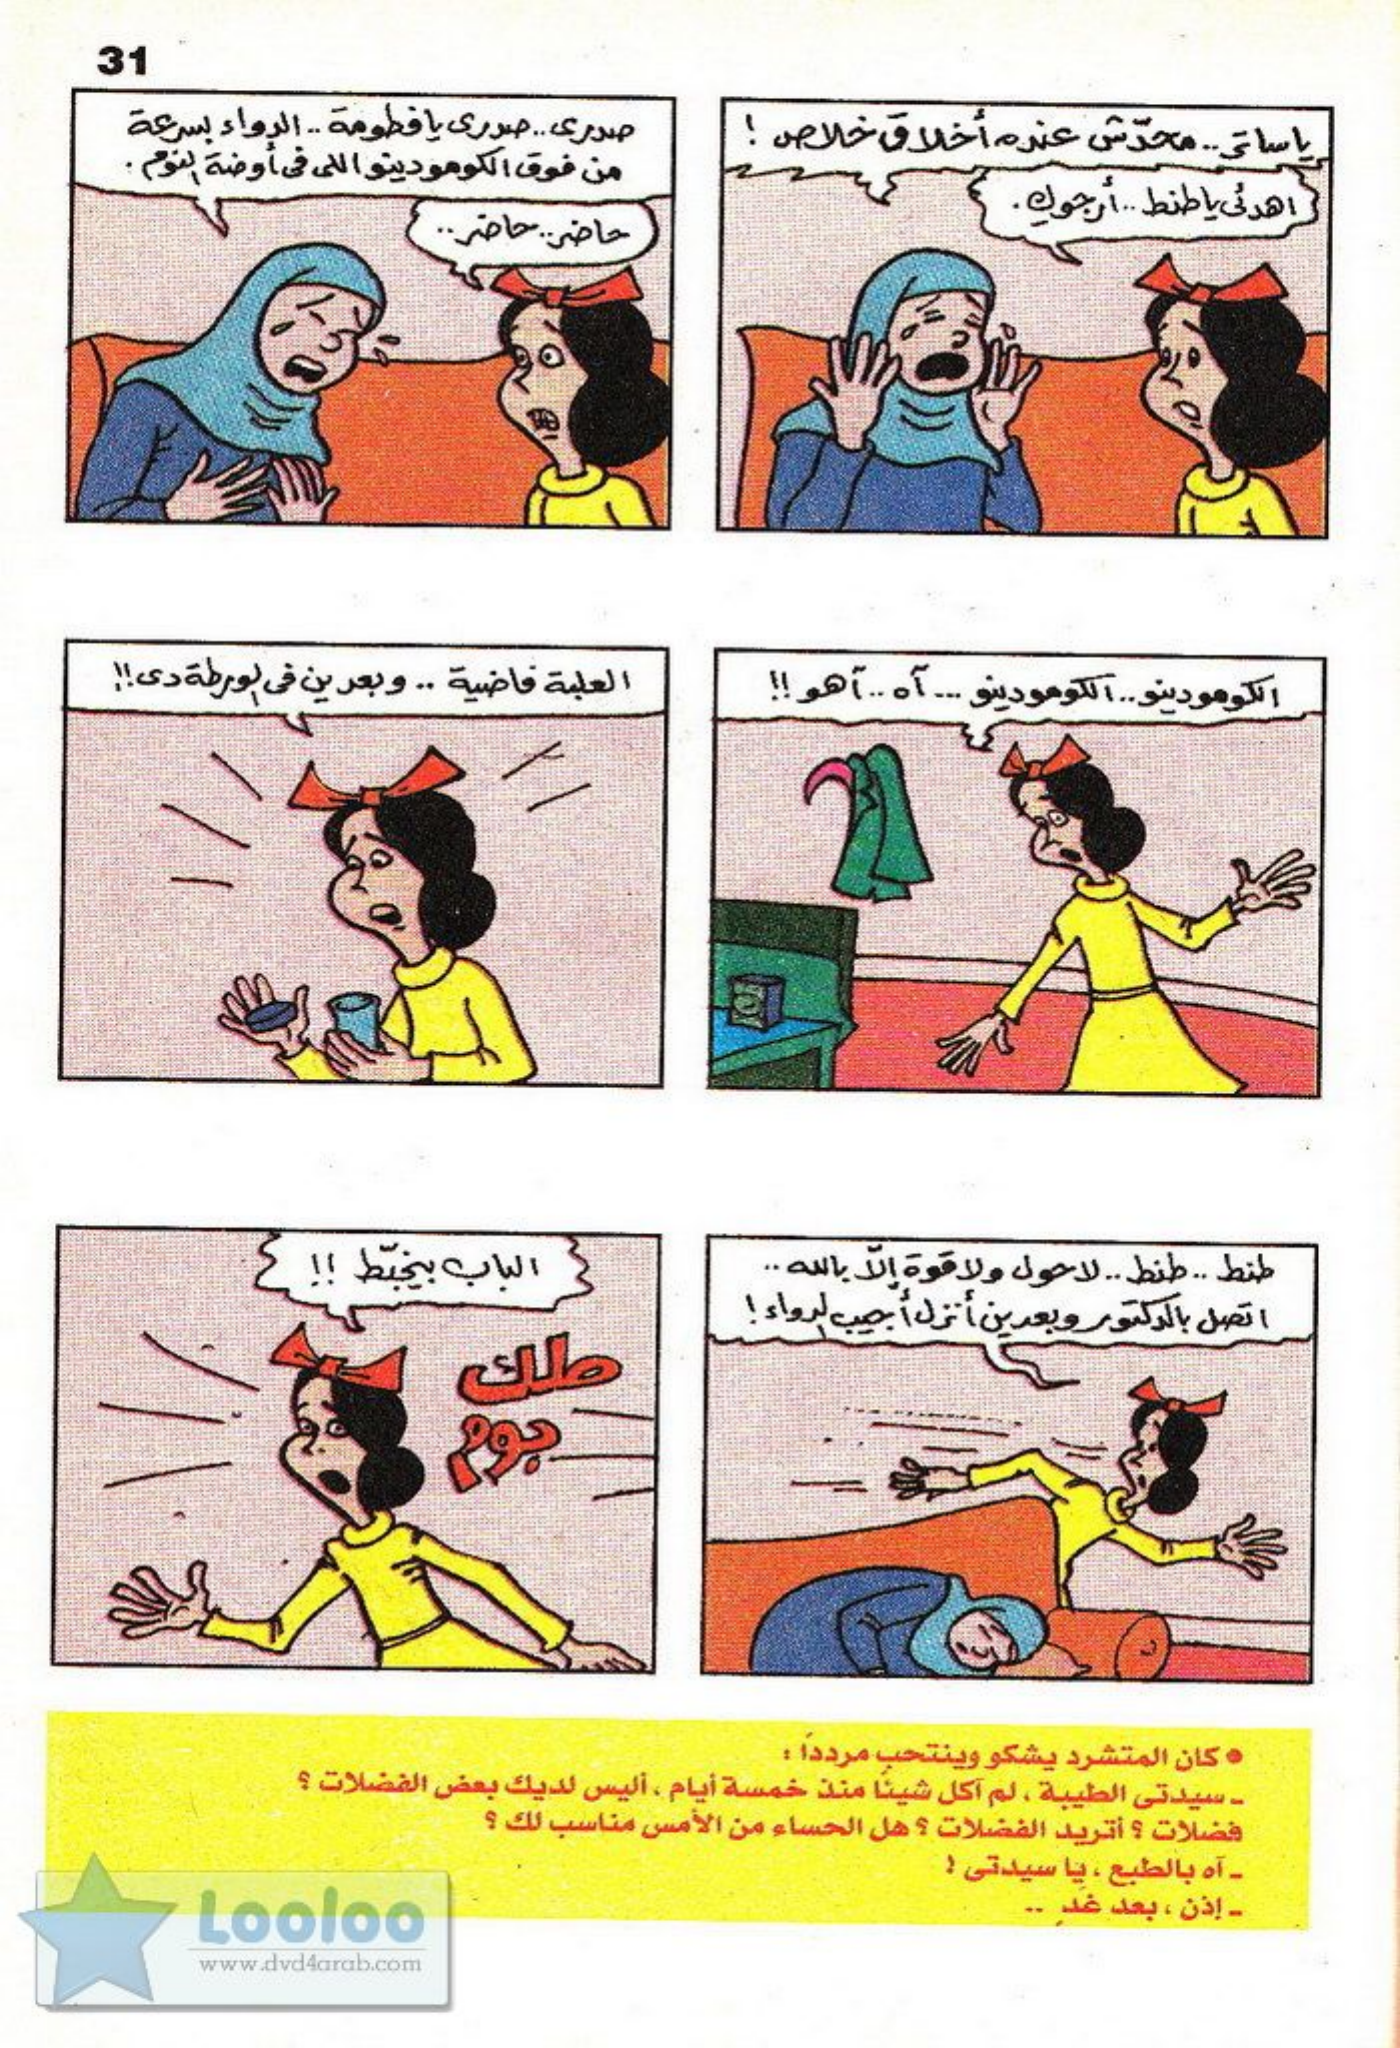 31
ياساتر.. محدّش عنده أخلاق خلاص !
اهدئى ياطنط.. أرجوكِ.
صدرى.. صدرى يافطومة.. الدواء بسرعة
من فوق الكومودينو اللى فى أوضة النوم.
حاضر.. حاضر..
الكومودينو.. الكومودينو... آه.. آهو !!
العلبة فاضية.. وبعدين فى الورطة دى!!
طنط.. طنط.. لاحول ولاقوة إلّا بالله..
اتصل بالدكتور وبعدين أنزل أجيب الدواء !
الباب بيخبّط !!
طك
بوم
● كان المتشرد يشكو وينتحب مرددًا :
ـ سيدتى الطيبة ، لم آكل شيئًا منذ خمسة أيام ، أليس لديك بعض الفضلات ؟
فضلات ؟ أتريد الفضلات ؟ هل الحساء من الأمس مناسب لك ؟
ـ آه بالطبع ، يا سيدتى !
ـ إذن ، بعد غدٍ ..
Looloo
www.dvd4arab.com